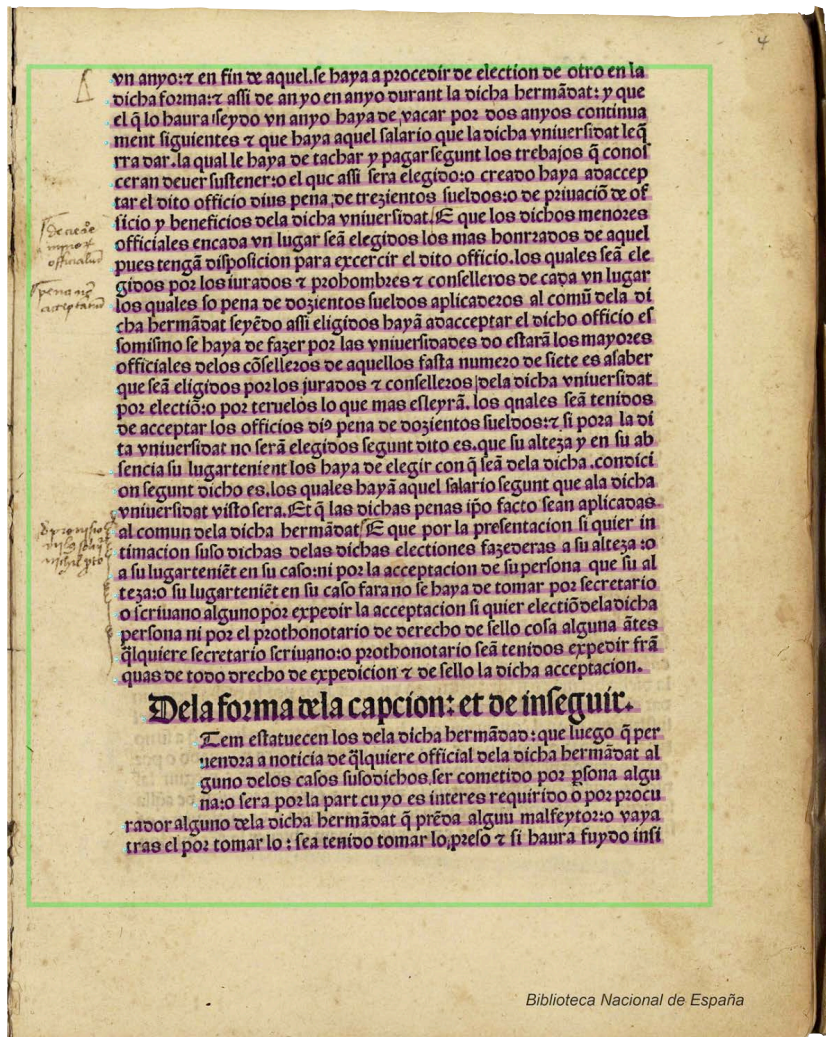 4
vn anyo:⁊ en fin de aquel.se haya a procedir de election de otro en la
dicha forma:⁊ assi de anyo en anyo durant la dicha hermãdat: y que
el q̃ lo haura seydo vn anyo haya de vacar por dos anyos continua
ment siguientes ⁊ que haya aquel salario que la dicha vniuersidat leq̃
rra dar.la qual le haya de tachar y pagar segunt los trebajos q̃ conos
ceran deuer sustener:o el que assi sera elegido:o creado haya adaccep
tar el dito officio dius pena de trezientos sueldos:o de priuaciõ de of
ficio y beneficios dela dicha vniuersidat. E que los dichos menores
officiales encada vn lugar seã elegidos los mas honrrados de aquel
pues tengã disposicion para excercir el dito officio.los quales seã ele
gidos por los iurados ⁊ prohombres ⁊ conselleros de cada vn lugar
los quales so pena de dozientos sueldos aplicaderos al comũ dela di
cha hermãdat seyẽdo assi eligidos hayã adacceptar el dicho officio es
somismo se haya de fazer por las vniuersidades do estarã los mayores
officiales delos cõselleros de aquellos fasta numero de siete es asaber
que seã eligidos por los jurados ⁊ conselleros dela dicha vniuersidat
por electiõ:o por teruelos lo que mas esleyrã. los quales seã tenidos
de acceptar los officios diꝰ pena de dozientos sueldos:⁊ si pora la di
ta vniuersidat no serã elegidos segunt dito es.que su alteza y en su ab
sencia su lugartenient los haya de elegir con q̃ seã dela dicha .condici
on segunt dicho es.los quales hayã aquel salario segunt que ala dicha
vniuersidat visto sera. Et q̃ las dichas penas ip̃o facto sean aplicadas
al comun dela dicha hermãdat. E que por la presentacion si quier in
timacion suso dichas delas dichas electiones fazederas a su alteza :o
a su lugarteniẽt en su caso:ni por la acceptacion de su persona que su al
teza:o su lugarteniẽt en su caso fara no se haya de tomar por secretario
o scriuano alguno por expedir la acceptacion si quier electiõ dela dicha
persona ni por el prothonotario de derecho de sello cosa alguna ãtes
q̃lquiere secretario scriuano:o prothonotario seã tenidos expedir frã
quas de todo drecho de expedicion ⁊ de sello la dicha acceptacion.
Dela forma dela capcion: et de inseguir.
Tem estatuecen los dela dicha hermãdad :que luego q̃ per
uendra a noticia de q̃lquiere official dela dicha hermãdat al
guno delos casos susodichos,ser cometido por ꝑsona algu
na:o sera por la part cuyo es interes requirido o por procu
rador alguno dela dicha hermãdat q̃ prẽda alguu malfeytor:o vaya
tras el por tomar lo : sea tenido tomar lo preso ⁊ si haura fuydo insi
Biblioteca Nacional de España